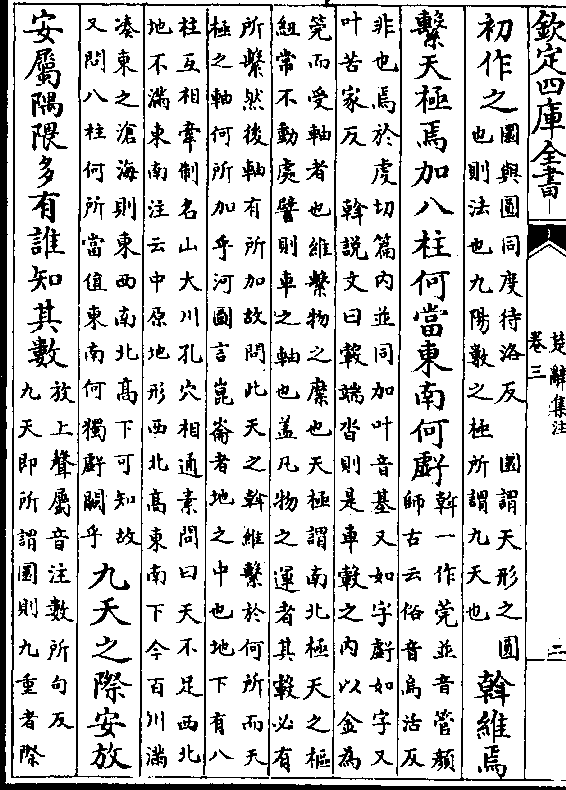 欽定四庫全書
楚辭集注
卷三
二
初作之圜與圓同度待洛反　圜謂天形之圓
也則法也九陽數之極所謂九天也斡維焉
繫天極焉加八柱何當東南何虧斡一作筦並音管顔
師古云俗音烏活反
非也焉於虔切篇内並同加叶音基又如字虧如字又
叶苦家反　斡說文曰轂端沓則是車轂之内以金為
筦而受軸者也維繫物之縻也天極謂南北極天之樞
紐常不動處譬則車之軸也蓋凡物之運者其轂必有
所繫然後軸有所加故問此天之斡維繫於何所而天
極之軸何所加乎河圖言崑崙者地之中也地下有八
柱互相牽制名山大川孔穴相通素問曰天不足西北
地不滿東南注云中原地形西北高東南下今百川滿
湊東之滄海則東西南北髙下可知故
又問八柱何所當值東南何獨虧闕乎九天之際安放
安屬隅隈多有誰知其數放上聲屬音注數所句反
九天即所謂圜則九重者際